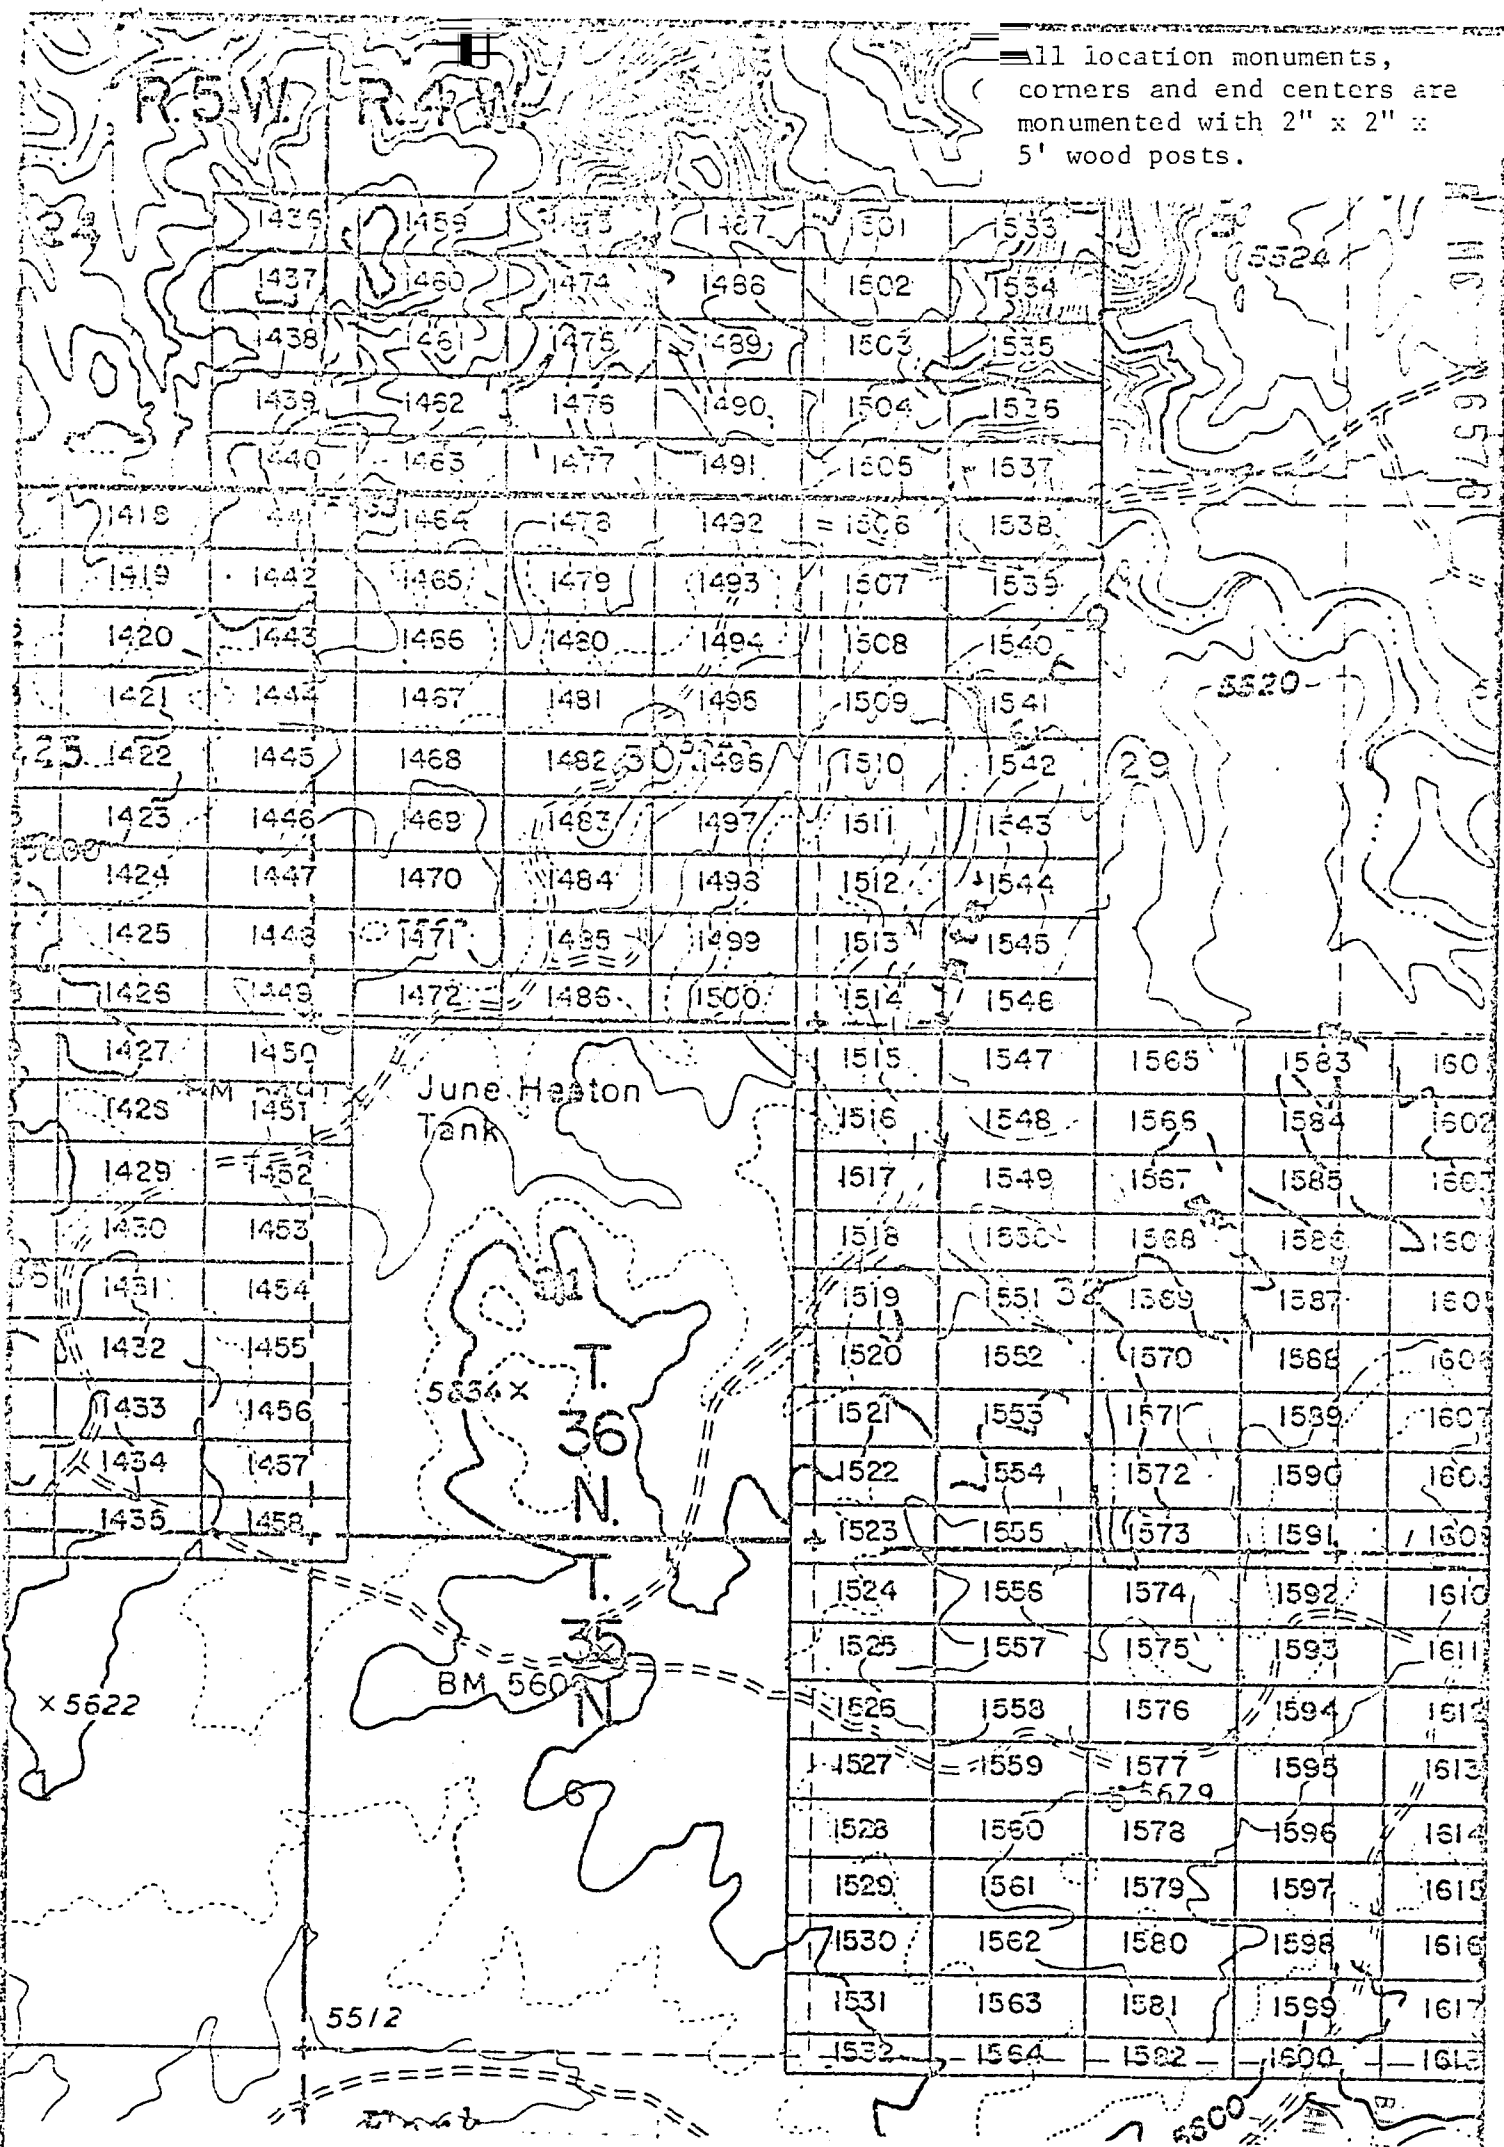 All location monuments,
corners and end centers are
monumented with 2" x 2" x
5' wood posts.
R.5W. R.4W.
24 1436 1459 1487 1501 1533
1437 1460 1474 1488 1502 1534 5524
1438 1461 1475 1489 1503 1535
1439 1462 1476 1490 1504 1536
1440 1463 1477 1491 1505 1537
1418 1441 1464 1478 1492 1506 1538
1419 1442 1465 1479 1493 1507 1539
1420 1443 1466 1480 1494 1508 1540
1421 1444 1467 1481 1495 1509 1541 5520
25 1422 1445 1468 1482 30 1496 1510 1542 29
1423 1446 1469 1483 1497 1511 1543
1424 1447 1470 1484 1498 1512 1544
1425 1448 1471 1485 1499 1513 1545
1426 1449 1472 1486 1500 1514 1546
1427 1450 1515 1547 1565 1583 160
1428 1451 June Heaton 1516 1548 1566 1584 1602
Tank
1429 1452 1517 1549 1567 1585 160
1430 1453 1518 1550 1568 1586 160
1431 1454 31 1519 1551 32 1569 1587 160
1432 1455 T. 1520 1552 1570 1588 160
1433 1456 36 1521 1553 1571 1589 1607
1434 1457 N. 1522 1554 1572 1590 160
1435 1458 1523 1555 1573 1591 160
T. 1524 1556 1574 1592 1610
35 1525 1557 1575 1593 1611
×5622 BM 560 N 1526 1558 1576 1594 161
1527 1559 1577 1595 1613
6 5679
1528 1560 1578 1596 1614
1529 1561 1579 1597 1615
1530 1562 1580 1598 1616
5512 1531 1563 1581 1599 1617
1532 1564 1582 1600 161
5600